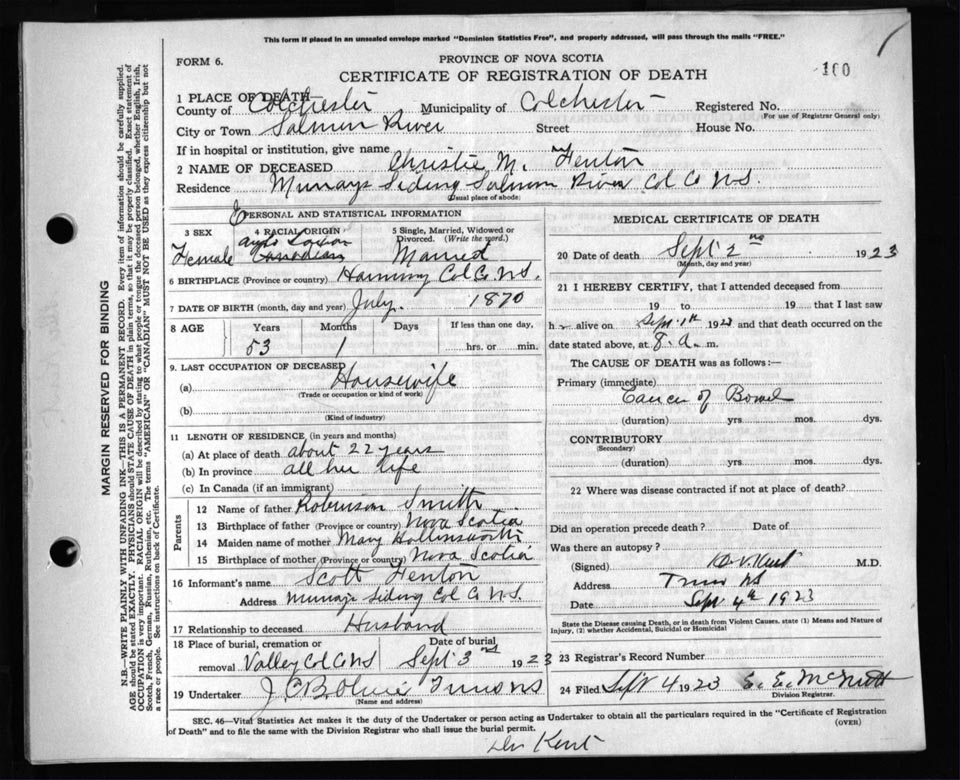 This form if placed in an unsealed envelope marked "Dominion Statistics Free", and properly addressed, will pass through the mails "FREE."
FORM 6.
PROVINCE OF NOVA SCOTIA
CERTIFICATE OF REGISTRATION OF DEATH
100
1 PLACE OF DEATH
County of Colchester Municipality of Colchester Registered No.
(For use of Registrar General only)
City or Town Salmon River Street House No.
If in hospital or institution, give name
2 NAME OF DECEASED Christie M. Fenton
Residence Murrays Siding Salmon River Col Co N.S.
(Usual place of abode)
PERSONAL AND STATISTICAL INFORMATION
3 SEX 4 RACIAL ORIGIN 5 Single, Married, Widowed or Divorced. (Write the word.)
Female Anglo Saxon Canadian Married
6 BIRTHPLACE (Province or country) Col Co. N.S.
7 DATE OF BIRTH (month, day and year) July. 1870
8 AGE Years Months Days If less than one day,
53 1 hrs. or min.
9. LAST OCCUPATION OF DECEASED
(a) Housewife
(Trade or occupation or kind of work)
(b)
(Kind of industry)
11 LENGTH OF RESIDENCE (in years and months)
(a) At place of death about 22 years
(b) In province all her life
(c) In Canada (if an immigrant)
Parents
12 Name of father Robinson Smith
13 Birthplace of father (Province or country) Nova Scotia
14 Maiden name of mother Mary Hollinsworth
15 Birthplace of mother (Province or country) Nova Scotia
16 Informant's name Scott Fenton
Address Murrays Siding Col Co N.S.
17 Relationship to deceased Husband
18 Place of burial, cremation or removal Date of burial
Valley Col Co NS Sept 3rd 1923
19 Undertaker
(Name and address)
MEDICAL CERTIFICATE OF DEATH
20 Date of death Sept 2nd 1923
(Month, day and year)
21 I HEREBY CERTIFY, that I attended deceased from
19 to 19 that I last saw
h alive on Sept. 1st 1923 and that death occurred on
date stated above, at 8. a. m.
The CAUSE OF DEATH was as follows:—
Primary (immediate)
Cancer of Bowel
(duration) yrs mos. dys.
CONTRIBUTORY
(Secondary)
(duration) yrs. mos. dys.
22 Where was disease contracted if not at place of death?
Did an operation precede death? Date of
Was there an autopsy?
(Signed) Kent M.D.
Address Truro NS
Date Sept 4th 1923
State the Disease causing Death, or in death from Violent Causes, state (1) Means and Nature of
Injury, (2) whether Accidental, Suicidal or Homicidal
23 Registrar's Record Number
24 Filed Sept 4 1923 E. E. McNutt
Division Registrar.
SEC. 46—Vital Statistics Act makes it the duty of the Undertaker or person acting as Undertaker to obtain all the particulars required in the "Certificate of Registration
of Death" and to file the same with the Division Registrar who shall issue the burial permit.
(OVER)
Dr Kent
MARGIN RESERVED FOR BINDING
N.B.—WRITE PLAINLY WITH UNFADING INK—THIS IS A PERMANENT RECORD. Every item of information should be carefully supplied.
AGE should be stated EXACTLY. PHYSICIANS should STATE CAUSE OF DEATH in plain terms, so that it may be properly classified. Exact statement of
OCCUPATION is very important. RACIAL ORIGIN will be described by stating to what people or tongue the deceased person belonged, whether English, Irish,
Scotch, French, German, Russian, Ruthenian, etc. The terms "AMERICAN" OR "CANADIAN" MUST NOT BE USED as they express citizenship but not
a race or people. See instructions on back of Certificate.